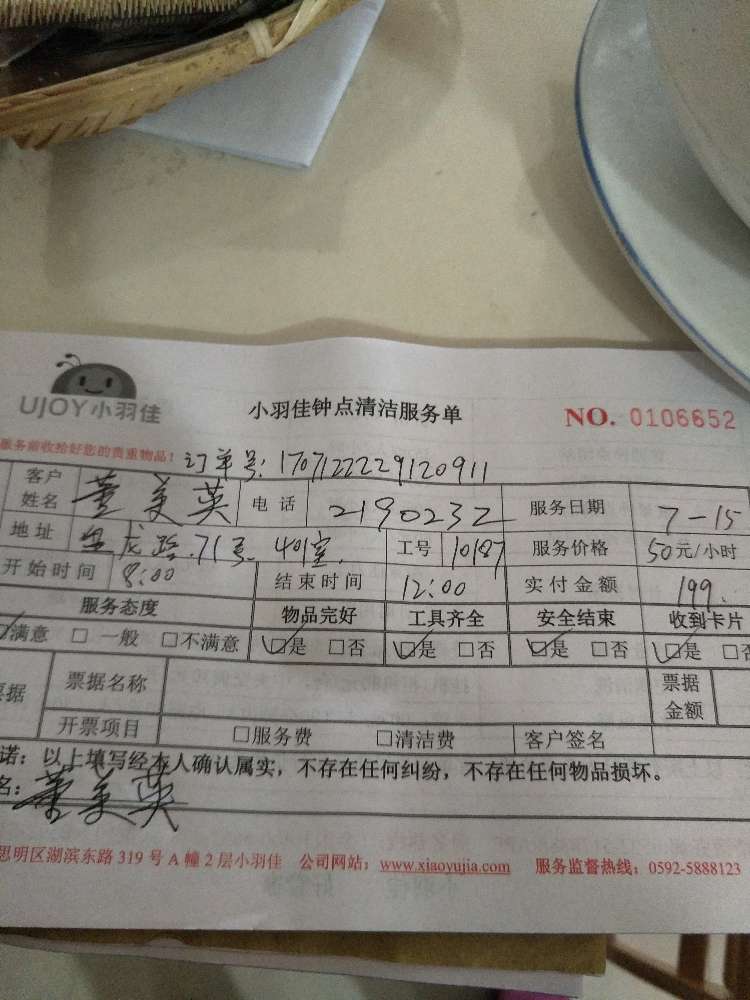 UJOY小羽佳
小羽佳钟点清洁服务单
NO. 0106652
服务前收拾好您的贵重物品！
订单号: 1707122229120911
客户姓名 董美英 电话 2190232 服务日期 7-15
地址 龙路.71号 401室. 工号 10187 服务价格 50元/小时
开始时间 8:00 结束时间 12:00 实付金额 199.
服务态度 物品完好 工具齐全 安全结束 收到卡片
满意 □ 一般 □不满意 ☑是 □否 ☑是 □否 ☑是 □否 ☑是 □否
票据 票据名称 票据金额
开票项目 □服务费 □清洁费 客户签名
诺：以上填写经本人确认属实，不存在任何纠纷，不存在任何物品损坏。
名：董美英
思明区湖滨东路 319 号 A 幢 2 层小羽佳 公司网站：www.xiaoyujia.com 服务监督热线：0592-5888123